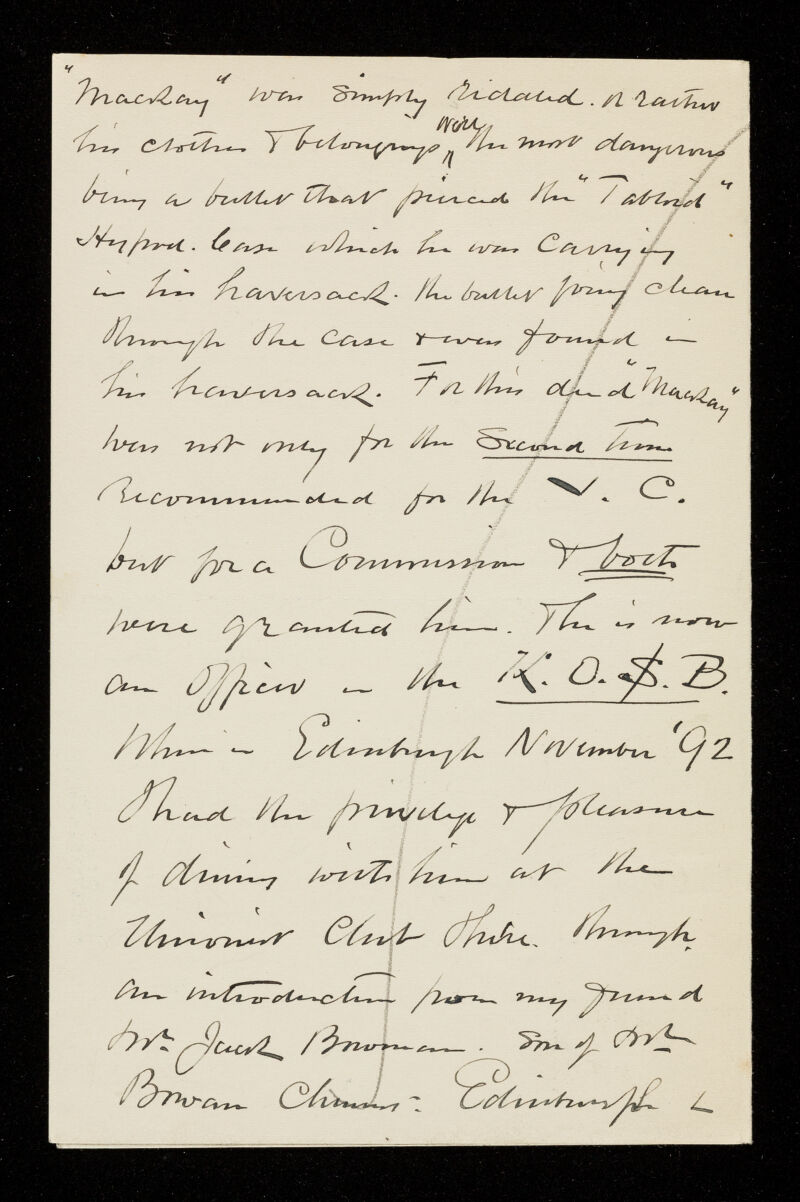 "Mackay" was simply riddled. or rather
his clothes & belongings were the most dangerous
being a bullet that pierced the "Tabloid"
Hypod. Case which he was carrying
in his haversack. the bullet going clean
through the case & was found in
his haversack. For this deed "Mackay"
was not only for the Second time
recommended for the V. C.
but for a Commission & both
were granted him. He is now
an Officer in the K. O. S. B.
When in Edinburgh November '92
I had the privilege & pleasure
of dining with him at the
Unionist Club there. through
an introduction from my friend
Mr. Jack Bowman. Son of Mr.
Bowan Chemist. Edinburgh &